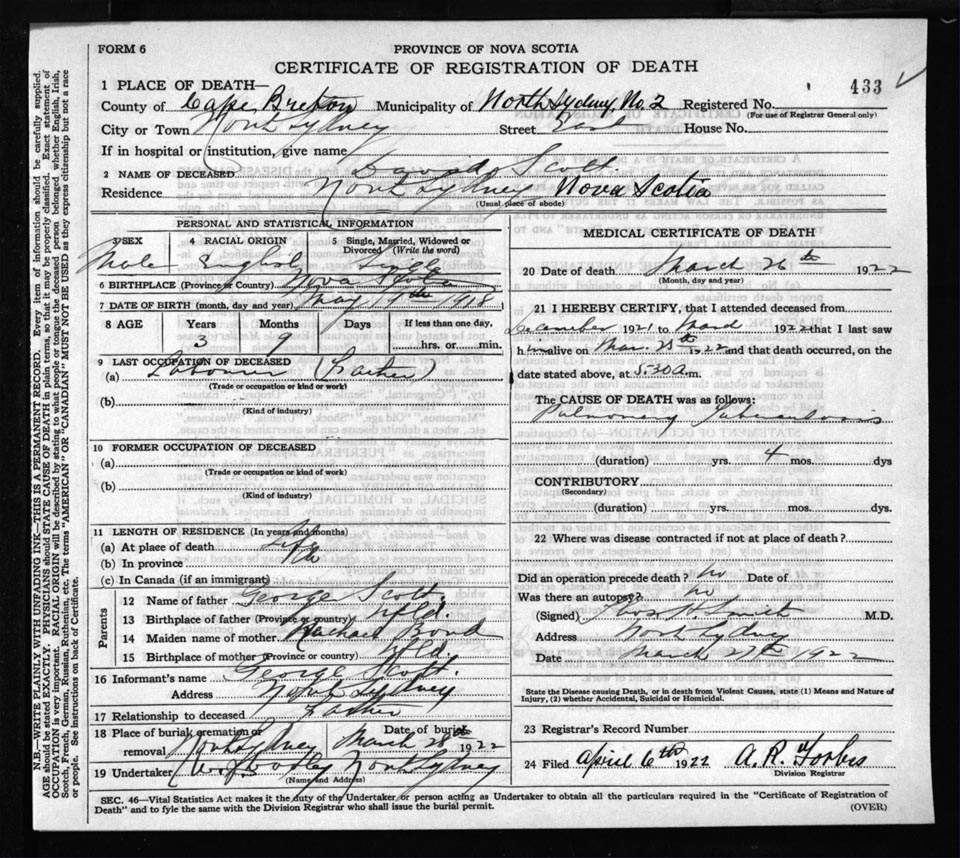 FORM 6
PROVINCE OF NOVA SCOTIA
CERTIFICATE OF REGISTRATION OF DEATH
433
1 PLACE OF DEATH—
County of Cape Breton Municipality of North Sydney, No. 2 Registered No.
(For use of Registrar General only)
City or Town North Sydney Street East House No.
If in hospital or institution, give name
2 NAME OF DECEASED David Scott.
Residence North Sydney Nova Scotia
(Usual place of abode)
PERSONAL AND STATISTICAL INFORMATION
3 SEX 4 RACIAL ORIGIN 5 Single, Married, Widowed or Divorced (Write the word)
Male English Single
6 BIRTHPLACE (Province or Country) Nova Scotia
7 DATE OF BIRTH (month, day and year) May 1918
8 AGE Years Months Days If less than one day,
3 9 hrs. or min.
9 LAST OCCUPATION OF DECEASED
(a) Labourer (Father)
(Trade or occupation or kind or work)
(b)
(Kind of industry)
10 FORMER OCCUPATION OF DECEASED
(a)
(Trade or occupation or kind of work)
(b)
(Kind of industry)
11 LENGTH OF RESIDENCE (In years and months)
(a) At place of death Life
(b) In province
(c) In Canada (if an immigrant)
Parents
12 Name of father George Scott
13 Birthplace of father (Province or country) Nfld.
14 Maiden name of mother Rachael Bond
15 Birthplace of mother (Province or country) Nfld.
16 Informant's name George Scott.
Address North Sydney
17 Relationship to deceased Father
18 Place of burial, cremation or removal North Sydney Date of burial March 28th 1922
19 Undertaker North Sydney
(Name and Address)
MEDICAL CERTIFICATE OF DEATH
20 Date of death March 26th 1922
(Month, day and year)
21 I HEREBY CERTIFY, that I attended deceased from
December 1921 to March 1922 that I last saw
him alive on Mar. 25th 1922 and that death occurred, on the
date stated above, at 5:30 a.m.
The CAUSE OF DEATH was as follows:
Pulmonary Tuberculosis
(duration) yrs. 4 mos. dys
CONTRIBUTORY
(Secondary)
(duration) yrs. mos. dys
22 Where was disease contracted if not at place of death?
Did an operation precede death? no Date of
Was there an autopsy? no
(Signed) Thos. H. Smith M.D.
Address North Sydney
Date March 27th 1922
State the Disease causing Death, or in death from Violent Causes, state (1) Means and Nature of Injury, (2) whether Accidental, Suicidal or Homicidal.
23 Registrar's Record Number
24 Filed April 6th 1922 A. R. Forbes
Division Registrar
SEC. 46—Vital Statistics Act makes it the duty of the Undertaker or person acting as Undertaker to obtain all the particulars required in the "Certificate of Registration of
Death" and to fyle the same with the Division Registrar who shall issue the burial permit.
(OVER)
N.B.—WRITE PLAINLY WITH UNFADING INK—THIS IS A PERMANENT RECORD. Every item of information should be carefully supplied.
AGE should be stated EXACTLY. PHYSICIANS should STATE CAUSE OF DEATH in plain terms, so that it may be properly classified. Exact statement of
OCCUPATION is very important. RACIAL ORIGIN will be described by stating to what people or tongue the deceased person belonged whether English, Irish,
Scotch, French, German, Russian, Ruthenian, etc. The terms "AMERICAN" OR "CANADIAN" MUST NOT BE USED as they express citizenship but not a race
or people. See instructions on back of Certificate.